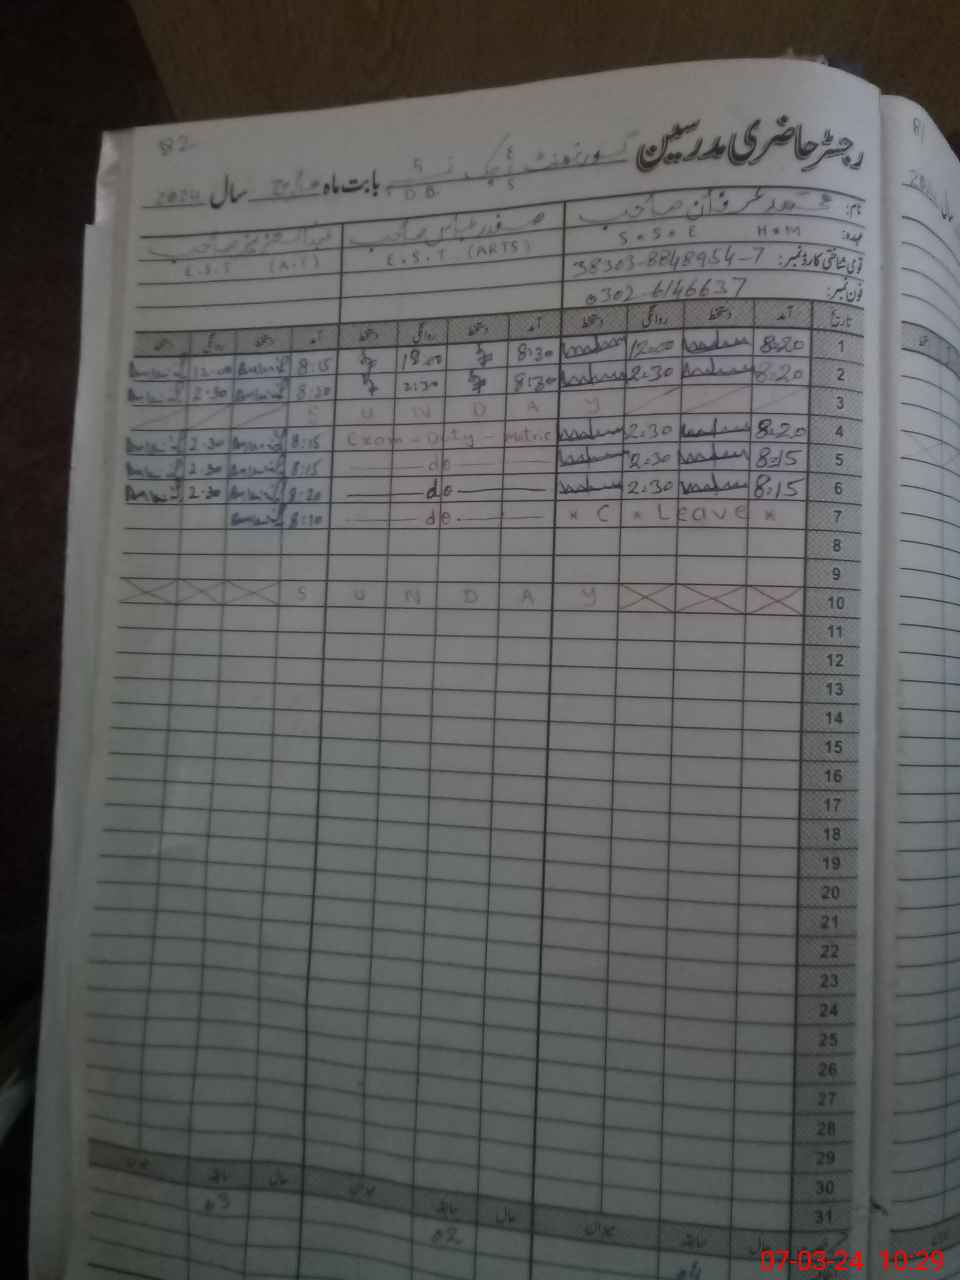 82
رجسٹر حاضری مدرسین گورنمنٹ
بابت ماہ مارچ سال 2024
نام: محمد عرفان صاحب صفدر عباس صاحب عبدالعزیز صاحب
عہدہ: S.S.E H.M E.S.T (ARTS) E.S.T (A.T)
قومی شناختی کارڈ نمبر: 38303-8848954-7
فون نمبر: 0302-6146637
تاریخ آمد دستخط روانگی دستخط آمد دستخط روانگی دستخط آمد دستخط روانگی دستخط
1 8:20 12:00 8:30 12:00 8:15 12:00
2 8:20 2:30 8:30 2:30 8:20 2:30
3 S U N D A Y
4 8:20 2:30 Exam - Duty - Matric 8:15 2:30
5 8:15 2:30 do 8:15 2:30
6 8:15 2:30 do 8:20 2:30
7 * C * Leave * do 8:20
8
9
10 S U N D A Y
11
12
13
14
15
16
17
18
19
20
21
22
23
24
25
26
27
28
29
30
31
حال سابقہ میزان حال سابقہ میزان حال سابقہ میزان
04 02 03
07-03-24 10:29